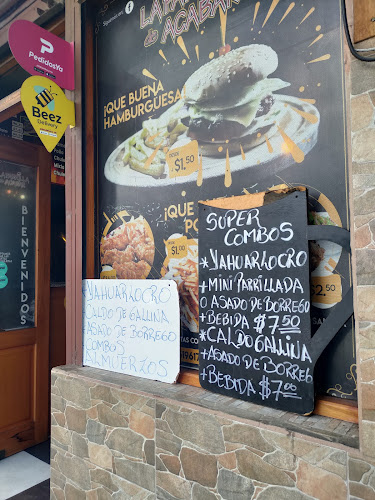 Síguenos en:
PedidosYa
Bee
Delivery
BIENVENIDOS
¡QUE BUENA
HAMBURGUESA!
$1.50
¡QUE
$1.50
$2.50
SUPER
COMBOS
*YAHUARLOCRO
+MINI PARRILLADA
O ASADO DE BORREGO
+BEBIDA $7.50
*CALDO GALLINA
+ASADO DE BORREGO
+BEBIDA $7.00
YAHUARLOCRO
CALDO DE GALLINA
ASADO DE BORREGO
COMBOS
ALMUERZOS